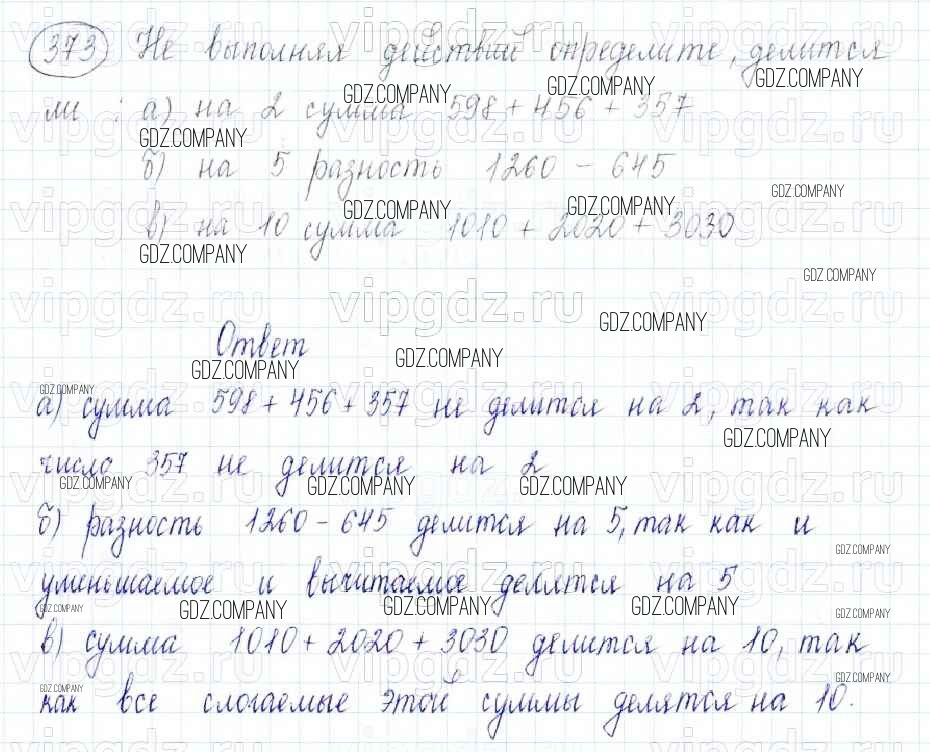 373 Не выполняя действий определите, делится
ли: а) на 2 сумма 598 + 456 + 357
б) на 5 разность 1260 - 645
в) на 10 сумма 1010 + 2020 + 3030
Ответ
а) сумма 598 + 456 + 357 не делится на 2, так как
число 357 не делится на 2
б) разность 1260 - 645 делится на 5, так как и
уменьшаемое и вычитаемое делятся на 5
в) сумма 1010 + 2020 + 3030 делится на 10, так
как все слогаемые этой суммы делятся на 10.